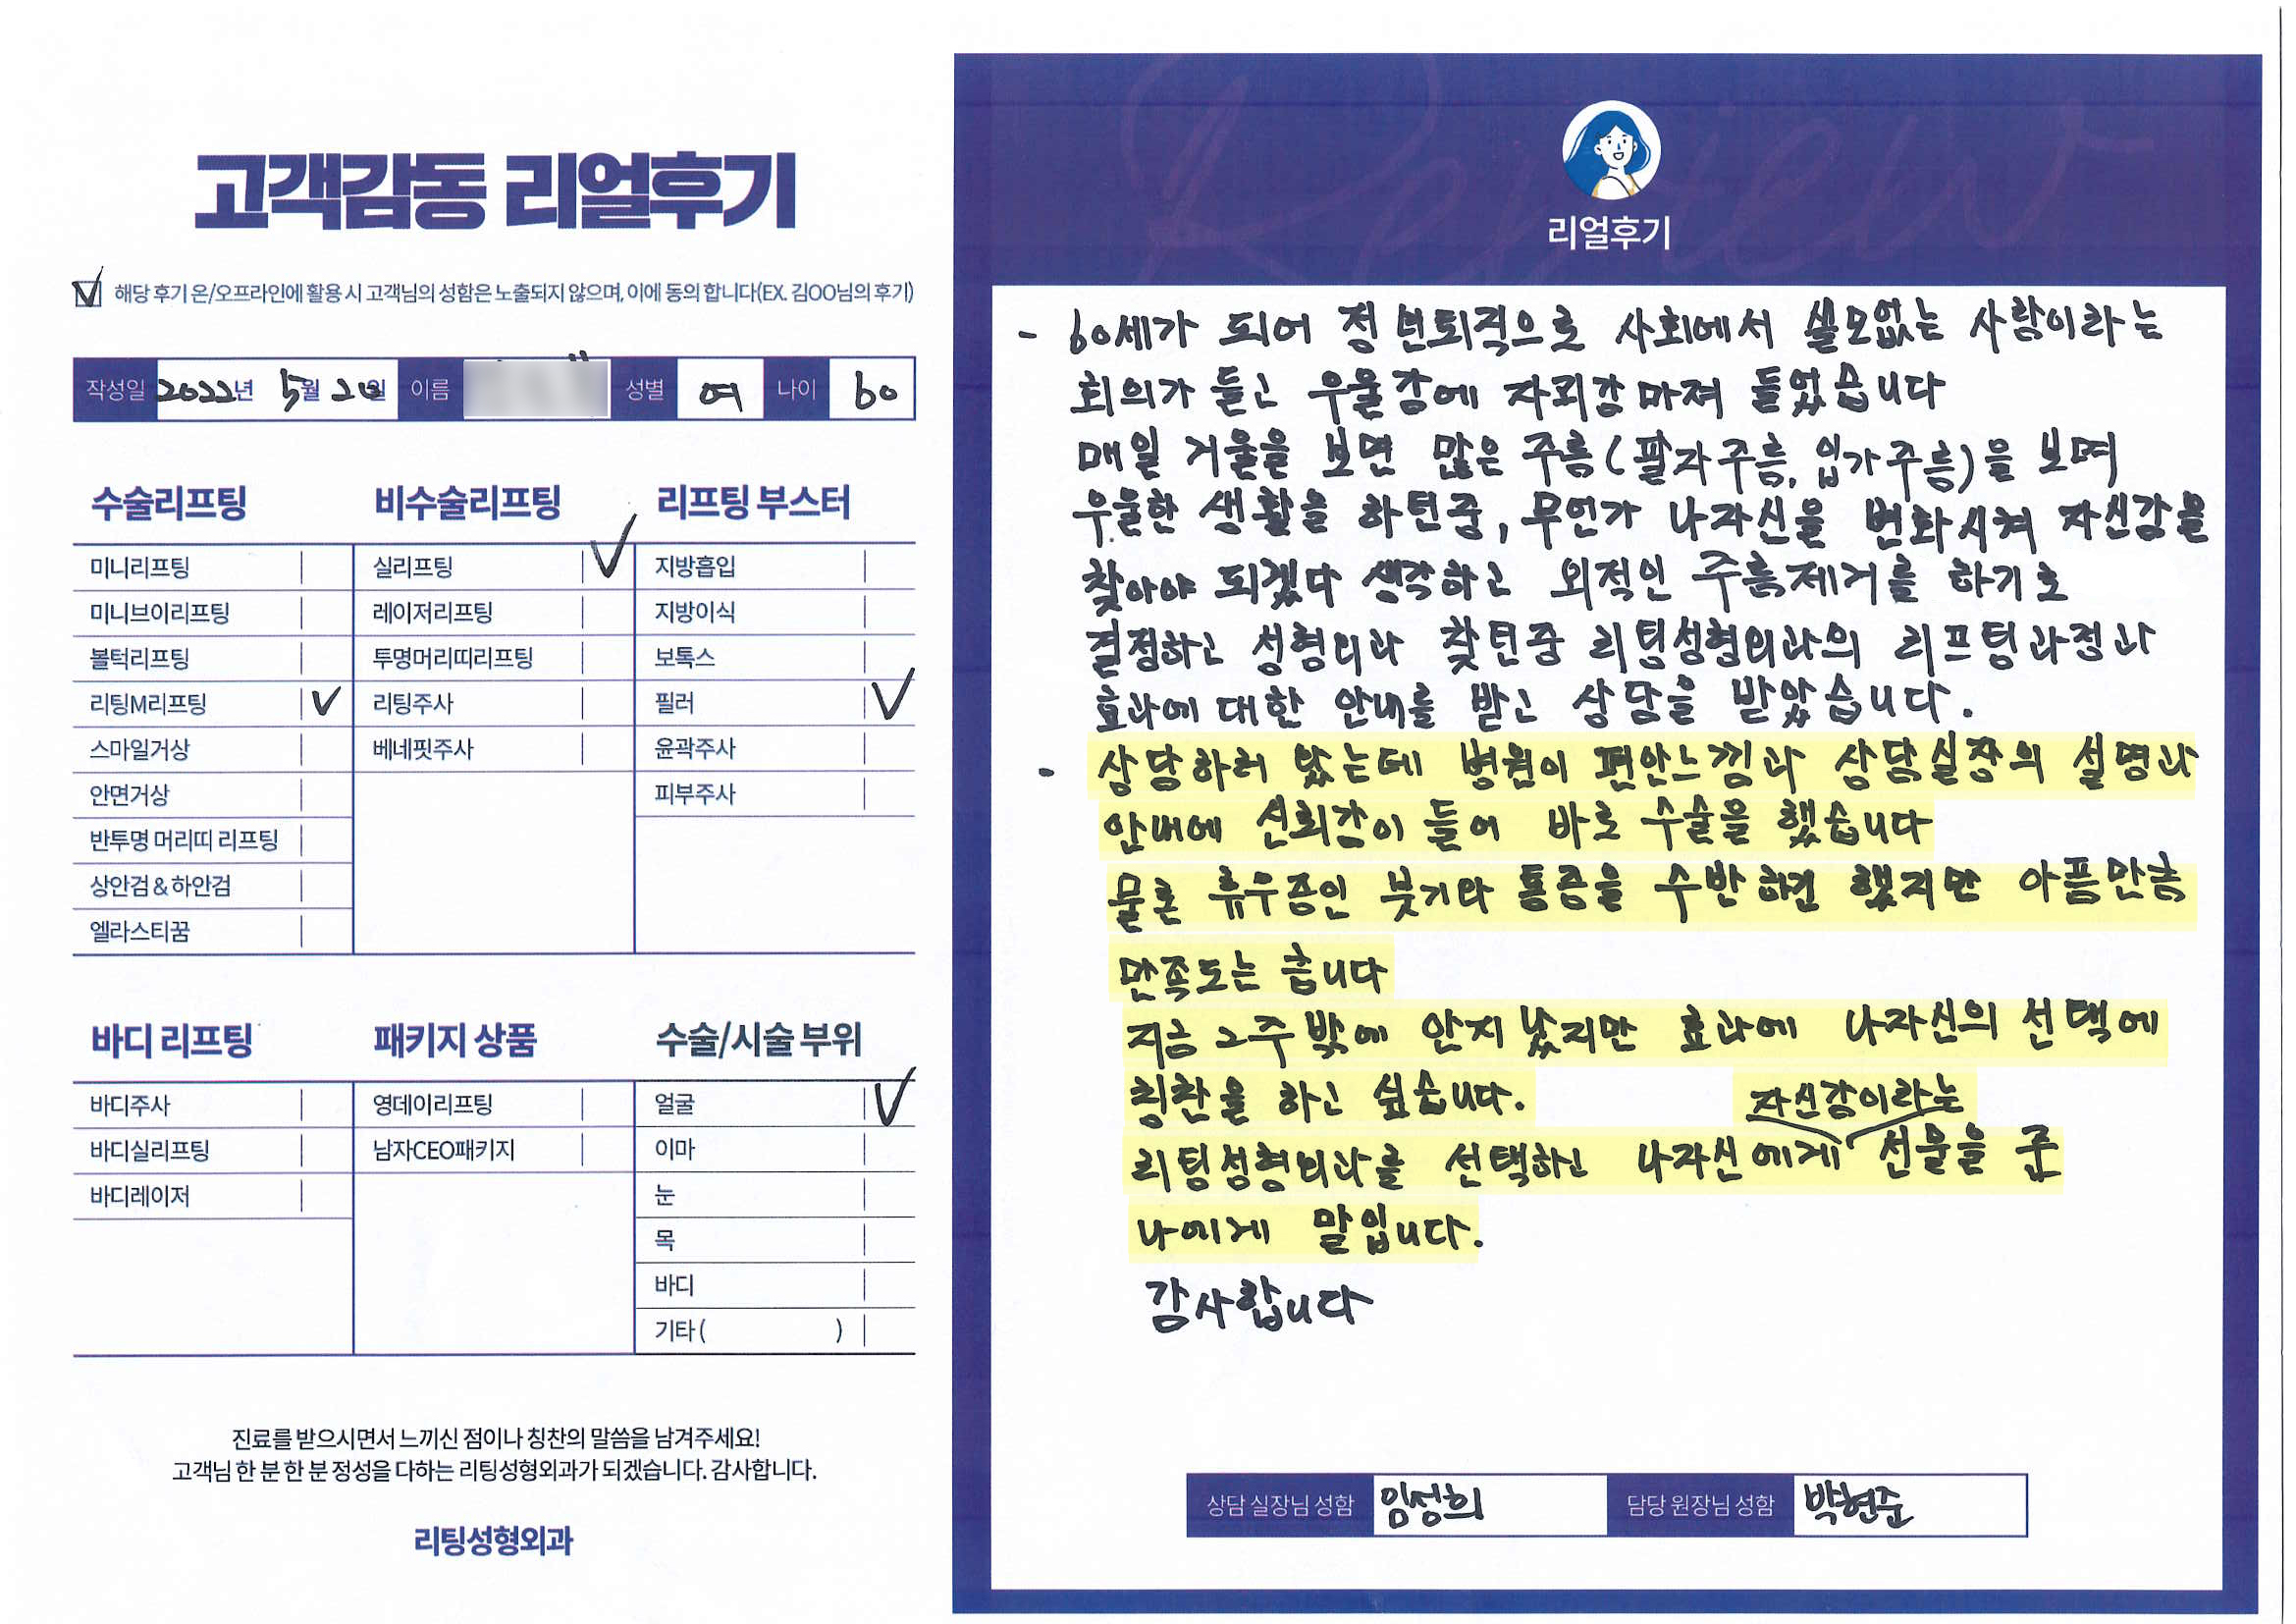 고객감동 리얼후기
해당 후기 온/오프라인에 활용 시 고객님의 성함은 노출되지 않으며, 이에 동의 합니다(EX. 김OO님의 후기)
작성일 2022년 5월 20일 이름 성별 여 나이 60
수술리프팅 비수술리프팅 리프팅 부스터
미니리프팅 실리프팅 지방흡입
미니브이리프팅 레이저리프팅 지방이식
볼턱리프팅 투명머리띠리프팅 보톡스
리팅M리프팅 리팅주사 필러
스마일거상 베네핏주사 윤곽주사
안면거상 피부주사
반투명 머리띠 리프팅
상안검 & 하안검
엘라스티꿈
바디 리프팅 패키지 상품 수술/시술 부위
바디주사 영데이리프팅 얼굴
바디실리프팅 남자CEO패키지 이마
바디레이저 눈
목
바디
기타 ( )
진료를 받으시면서 느끼신 점이나 칭찬의 말씀을 남겨주세요!
고객님 한 분 한 분 정성을 다하는 리팅성형외과가 되겠습니다. 감사합니다.
리팅성형외과
Review
리얼후기
- 60세가 되어 정년퇴직으로 사회에서 쓸모없는 사람이라는
회의가 들고 우울감에 자괴감마져 들었습니다
매일 거울을 보면 많은 주름(팔자주름, 입가주름)을 보며
우울한 생활을 하던중, 무언가 나자신을 변화시켜 자신감을
찾아야 되겠다 생각하고 외적인 주름제거를 하기로
결정하고 성형외과 찾던중 리팅성형외과의 리프팅과정과
효과에 대한 안내를 받고 상담을 받았습니다.
- 상담하러 왔는데 병원이 편안느낌과 상담실장의 설명과
안내에 신뢰감이 들어 바로 수술을 했습니다
물론 휴우증인 붓기와 통증을 수반하건 했지만 아픔만큼
만족도는 큽니다
지금 2주 밖에 안지났지만 효과에 나자신의 선택에
칭찬을 하고 싶습니다.
자신감이라는
리팅성형외과를 선택하고 나자신에게 선물을 준
나에게 말입니다.
감사합니다
상담 실장님 성함 임성희 담당 원장님 성함 박현준